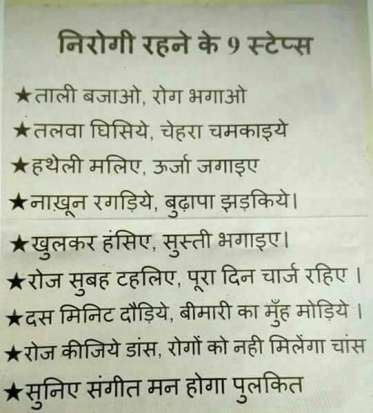 निरोगी रहने के 9 स्टेप्स
★ताली बजाओ, रोग भगाओ
★तलवा घिसिये, चेहरा चमकाइये
★हथेली मलिए, ऊर्जा जगाइए
★नाख़ून रगड़िये, बुढ़ापा झड़किये।
★खुलकर हंसिए, सुस्ती भगाइए।
★रोज सुबह टहलिए, पूरा दिन चार्ज रहिए ।
★दस मिनिट दौड़िये, बीमारी का मुँह मोड़िये ।
★रोज कीजिये डांस, रोगों को नही मिलेंगा चांस
★सुनिए संगीत मन होगा पुलकित